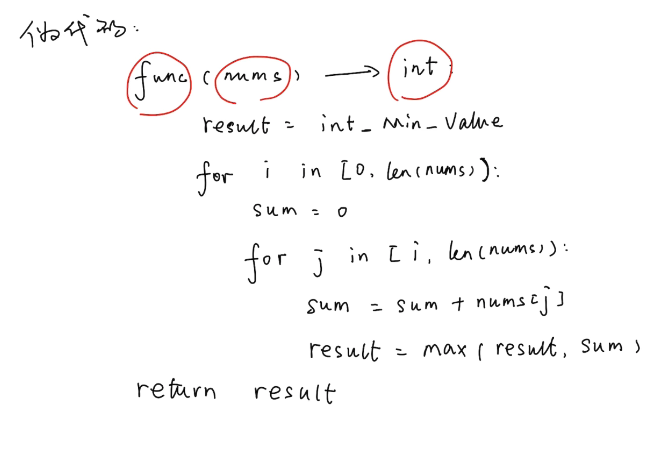 伪代码:
func (nums) → int:
result = int_Min_Value
for i in [0, len(nums)):
sum = 0
for j in [i, len(nums)):
sum = sum + nums[j]
result = max(result, sum)
return result